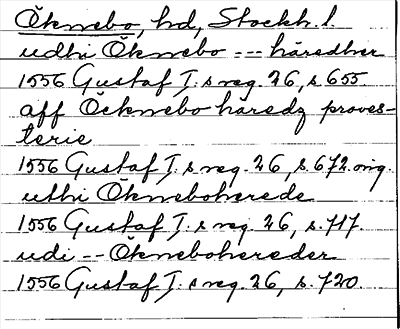 Öknebo, hd, Stockh. l.
udhi Öknebo --- häredher
1556 Gustaf I:s reg. 26, s. 655.
aff Öcknebo häredz proves-
terie
1556 Gustaf I:s reg. 26, s. 672. orig.
uthi Ökneboherede
1556 Gustaf I:s reg. 26, s. 717.
udi -- Öknebohereder
1556 Gustaf I:s reg. 26, s. 720.